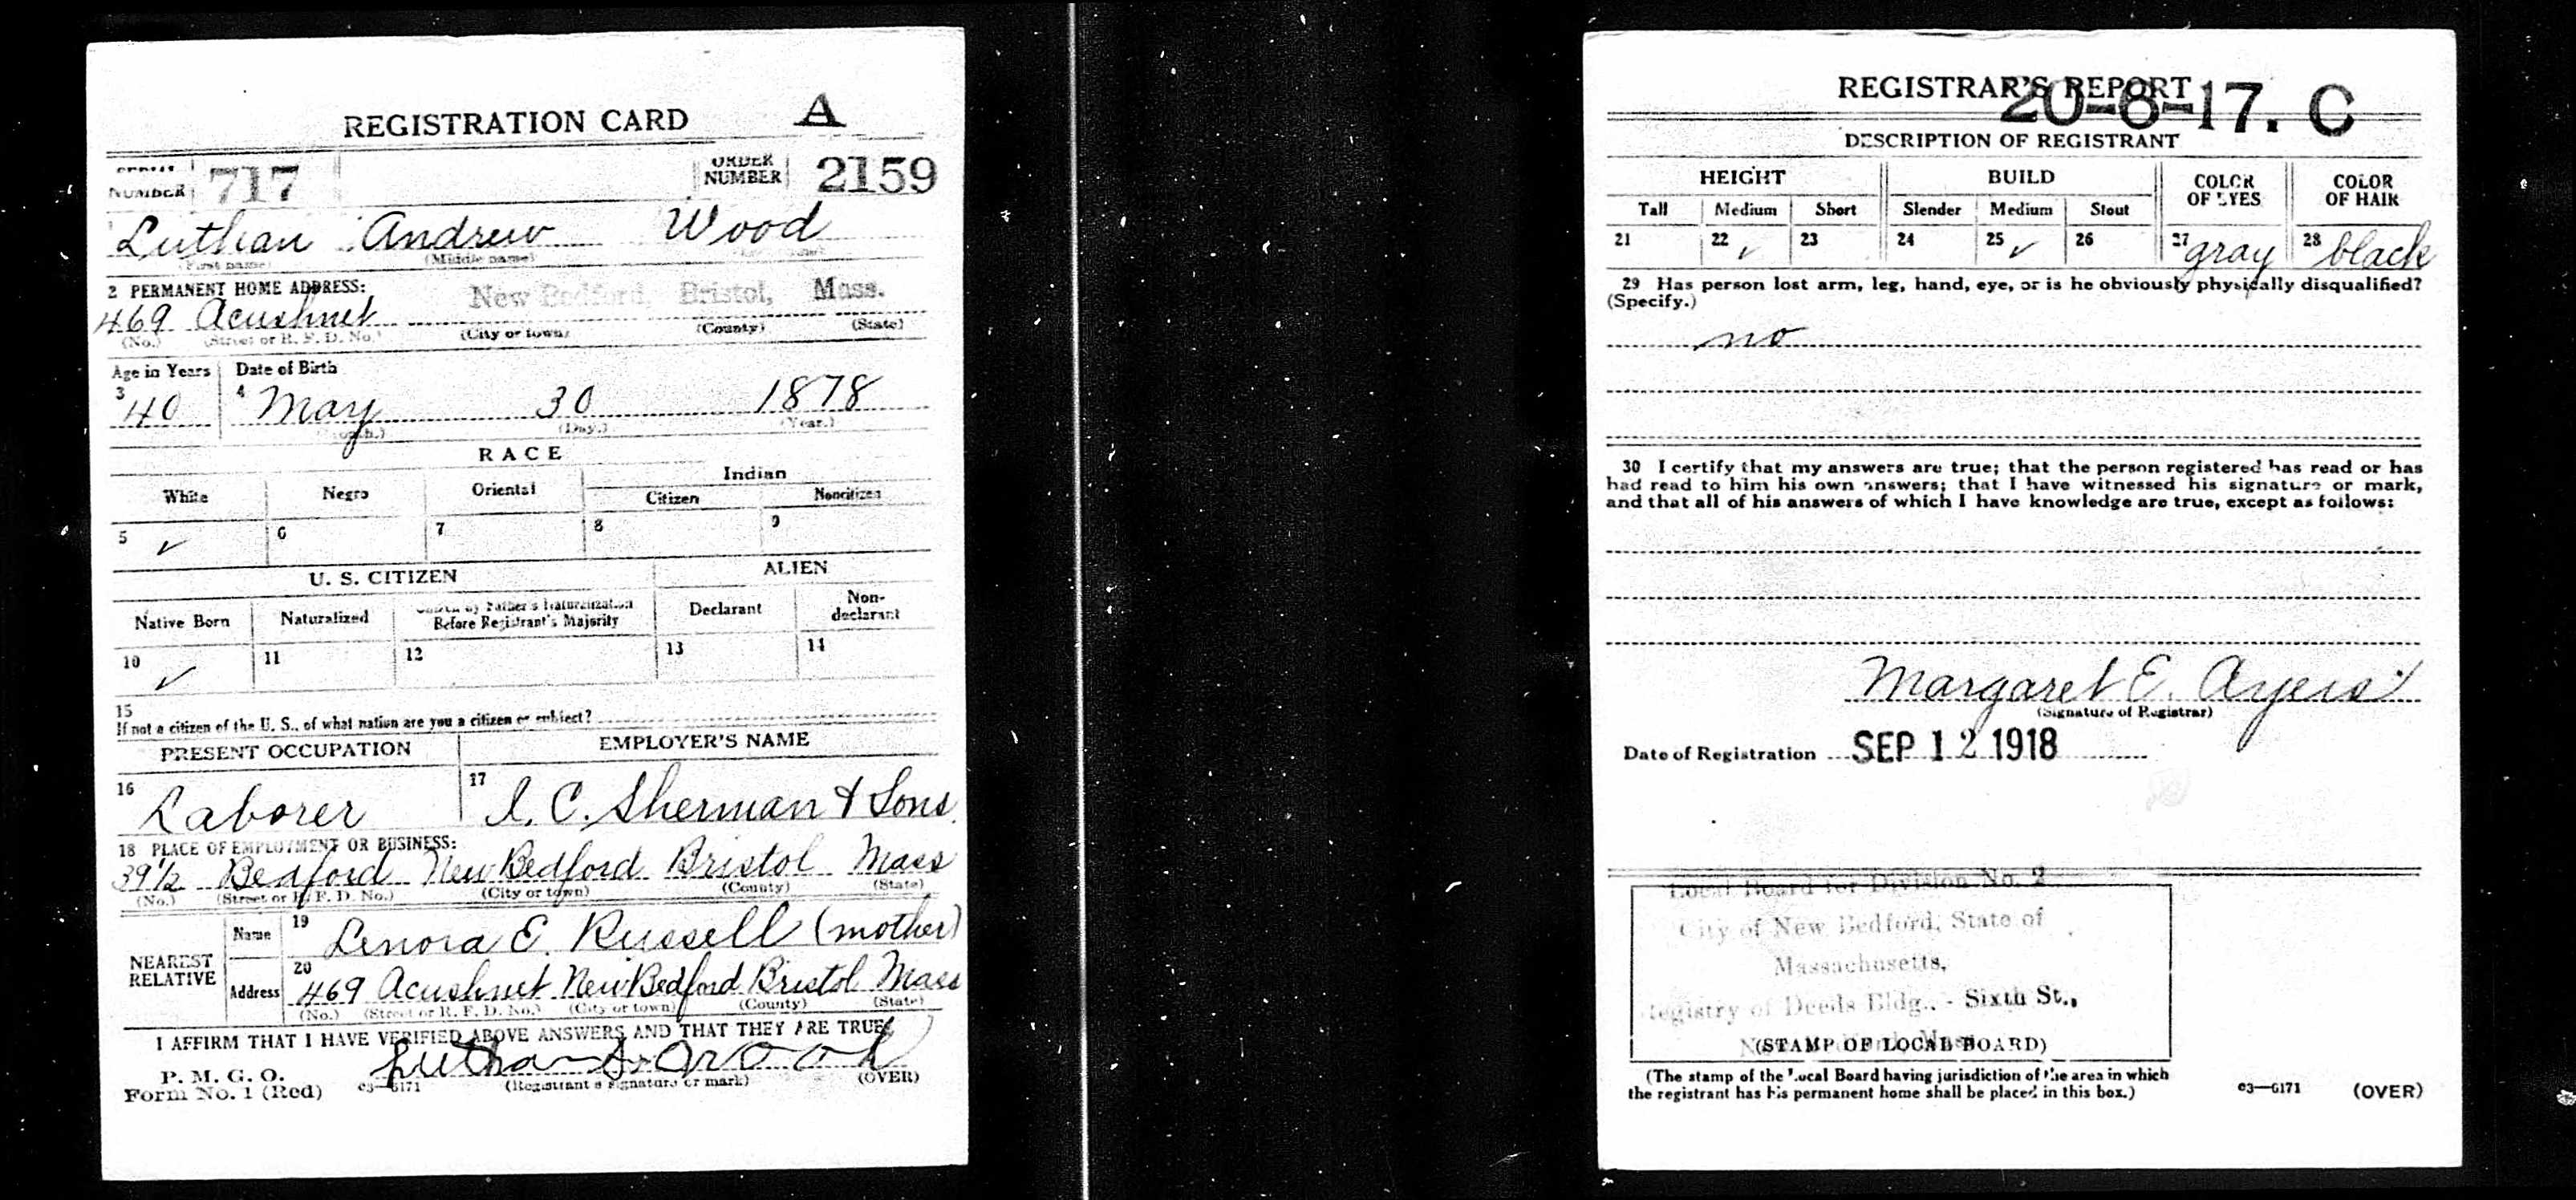 REGISTRATION CARD A
SERIAL NUMBER 717 ORDER NUMBER 2159
1 Luthan Andrew Wood
(First name) (Middle name)
2 PERMANENT HOME ADDRESS:
469 Acushnet New Bedford, Bristol, Mass.
(No.) (Street or R. F. D. No.) (City or town) (County) (State)
Age in Years Date of Birth
3 40 4 May 30 1878
(Month.) (Day.) (Year.)
RACE
White Negro Oriental Indian
Citizen Noncitizen
5 ✓ 6 7 8 9
U. S. CITIZEN ALIEN
Native Born Naturalized Citizen by Father's Naturalization Before Registrant's Majority Declarant Non-declarant
10 ✓ 11 12 13 14
15
If not a citizen of the U. S., of what nation are you a citizen or subject?
PRESENT OCCUPATION EMPLOYER'S NAME
16 Laborer 17 I. C. Sherman & Sons.
18 PLACE OF EMPLOYMENT OR BUSINESS:
39½ Bedford New Bedford Bristol Mass
(No.) (Street or R. F. D. No.) (City or town) (County) (State)
NEAREST RELATIVE
Name 19 Lenora E. Russell (mother)
Address 20 469 Acushnet New Bedford Bristol Mass
(No.) (Street or R. F. D. No.) (City or town) (County) (State)
I AFFIRM THAT I HAVE VERIFIED ABOVE ANSWERS AND THAT THEY ARE TRUE
P. M. G. O.
Form No. 1 (Red) 03—6171 (Registrant's signature or mark) (OVER)
Luthan A. Wood
REGISTRAR'S REPORT
20-6-17. C
DESCRIPTION OF REGISTRANT
HEIGHT BUILD COLOR OF EYES COLOR OF HAIR
Tall Medium Short Slender Medium Stout
21 22 ✓ 23 24 25 ✓ 26 27 gray 28 black
29 Has person lost arm, leg, hand, eye, or is he obviously physically disqualified?
(Specify.)
no
30 I certify that my answers are true; that the person registered has read or has
had read to him his own answers; that I have witnessed his signature or mark,
and that all of his answers of which I have knowledge are true, except as follows:
Margaret E. Ayers
(Signature of Registrar)
Date of Registration SEP 12 1918
Local Board for Division No. 2
City of New Bedford, State of
Massachusetts,
Registry of Deeds Bldg., - Sixth St.,
(STAMP OF LOCAL BOARD)
(The stamp of the Local Board having jurisdiction of the area in which
the registrant has his permanent home shall be placed in this box.)
03—6171 (OVER)